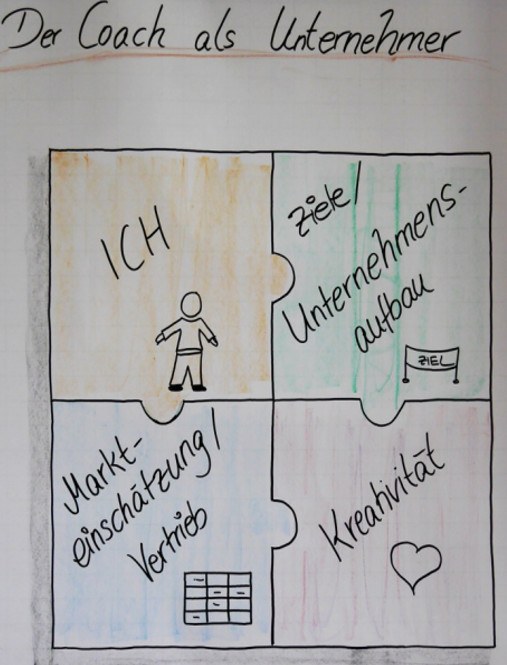 Der Coach als Unternehmer
ICH
Ziele/
Unternehmens-
aufbau
ZIEL
Markt-
einschätzung/
Vertrieb
Kreativität